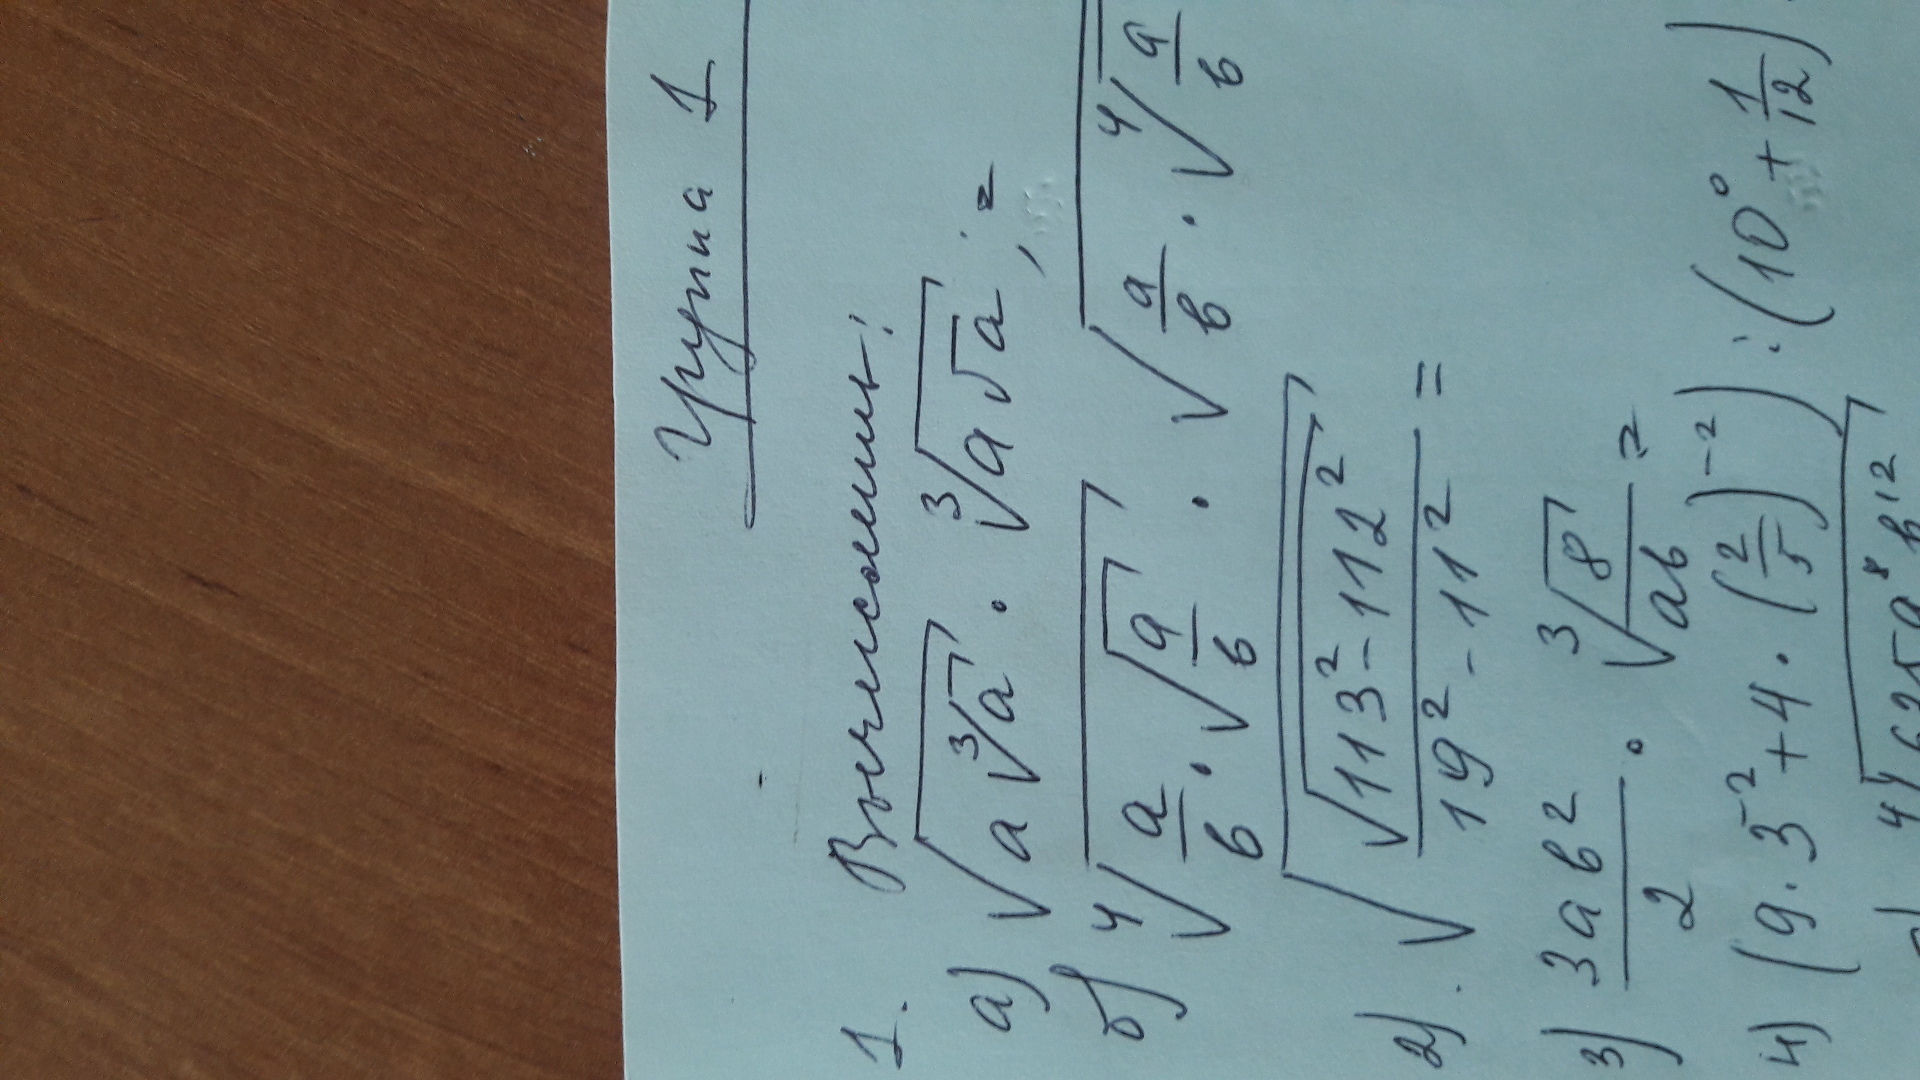 Группа 1
1. Вычислить:
а) √(a∛a) · ∛(a√a) ; =
б) ⁴√(a/b · √(a/b)) · √(a/b · ⁴√(a/b))
2) √(√(113² - 112²) / (19² - 11²)) =
3) 3ab²/2 · ∛(8/ab) =
4) (9 · 3⁻² + 4 · (2/5)⁻²) : (10⁰ + 1/12)
⁴√(625a⁸b¹²)